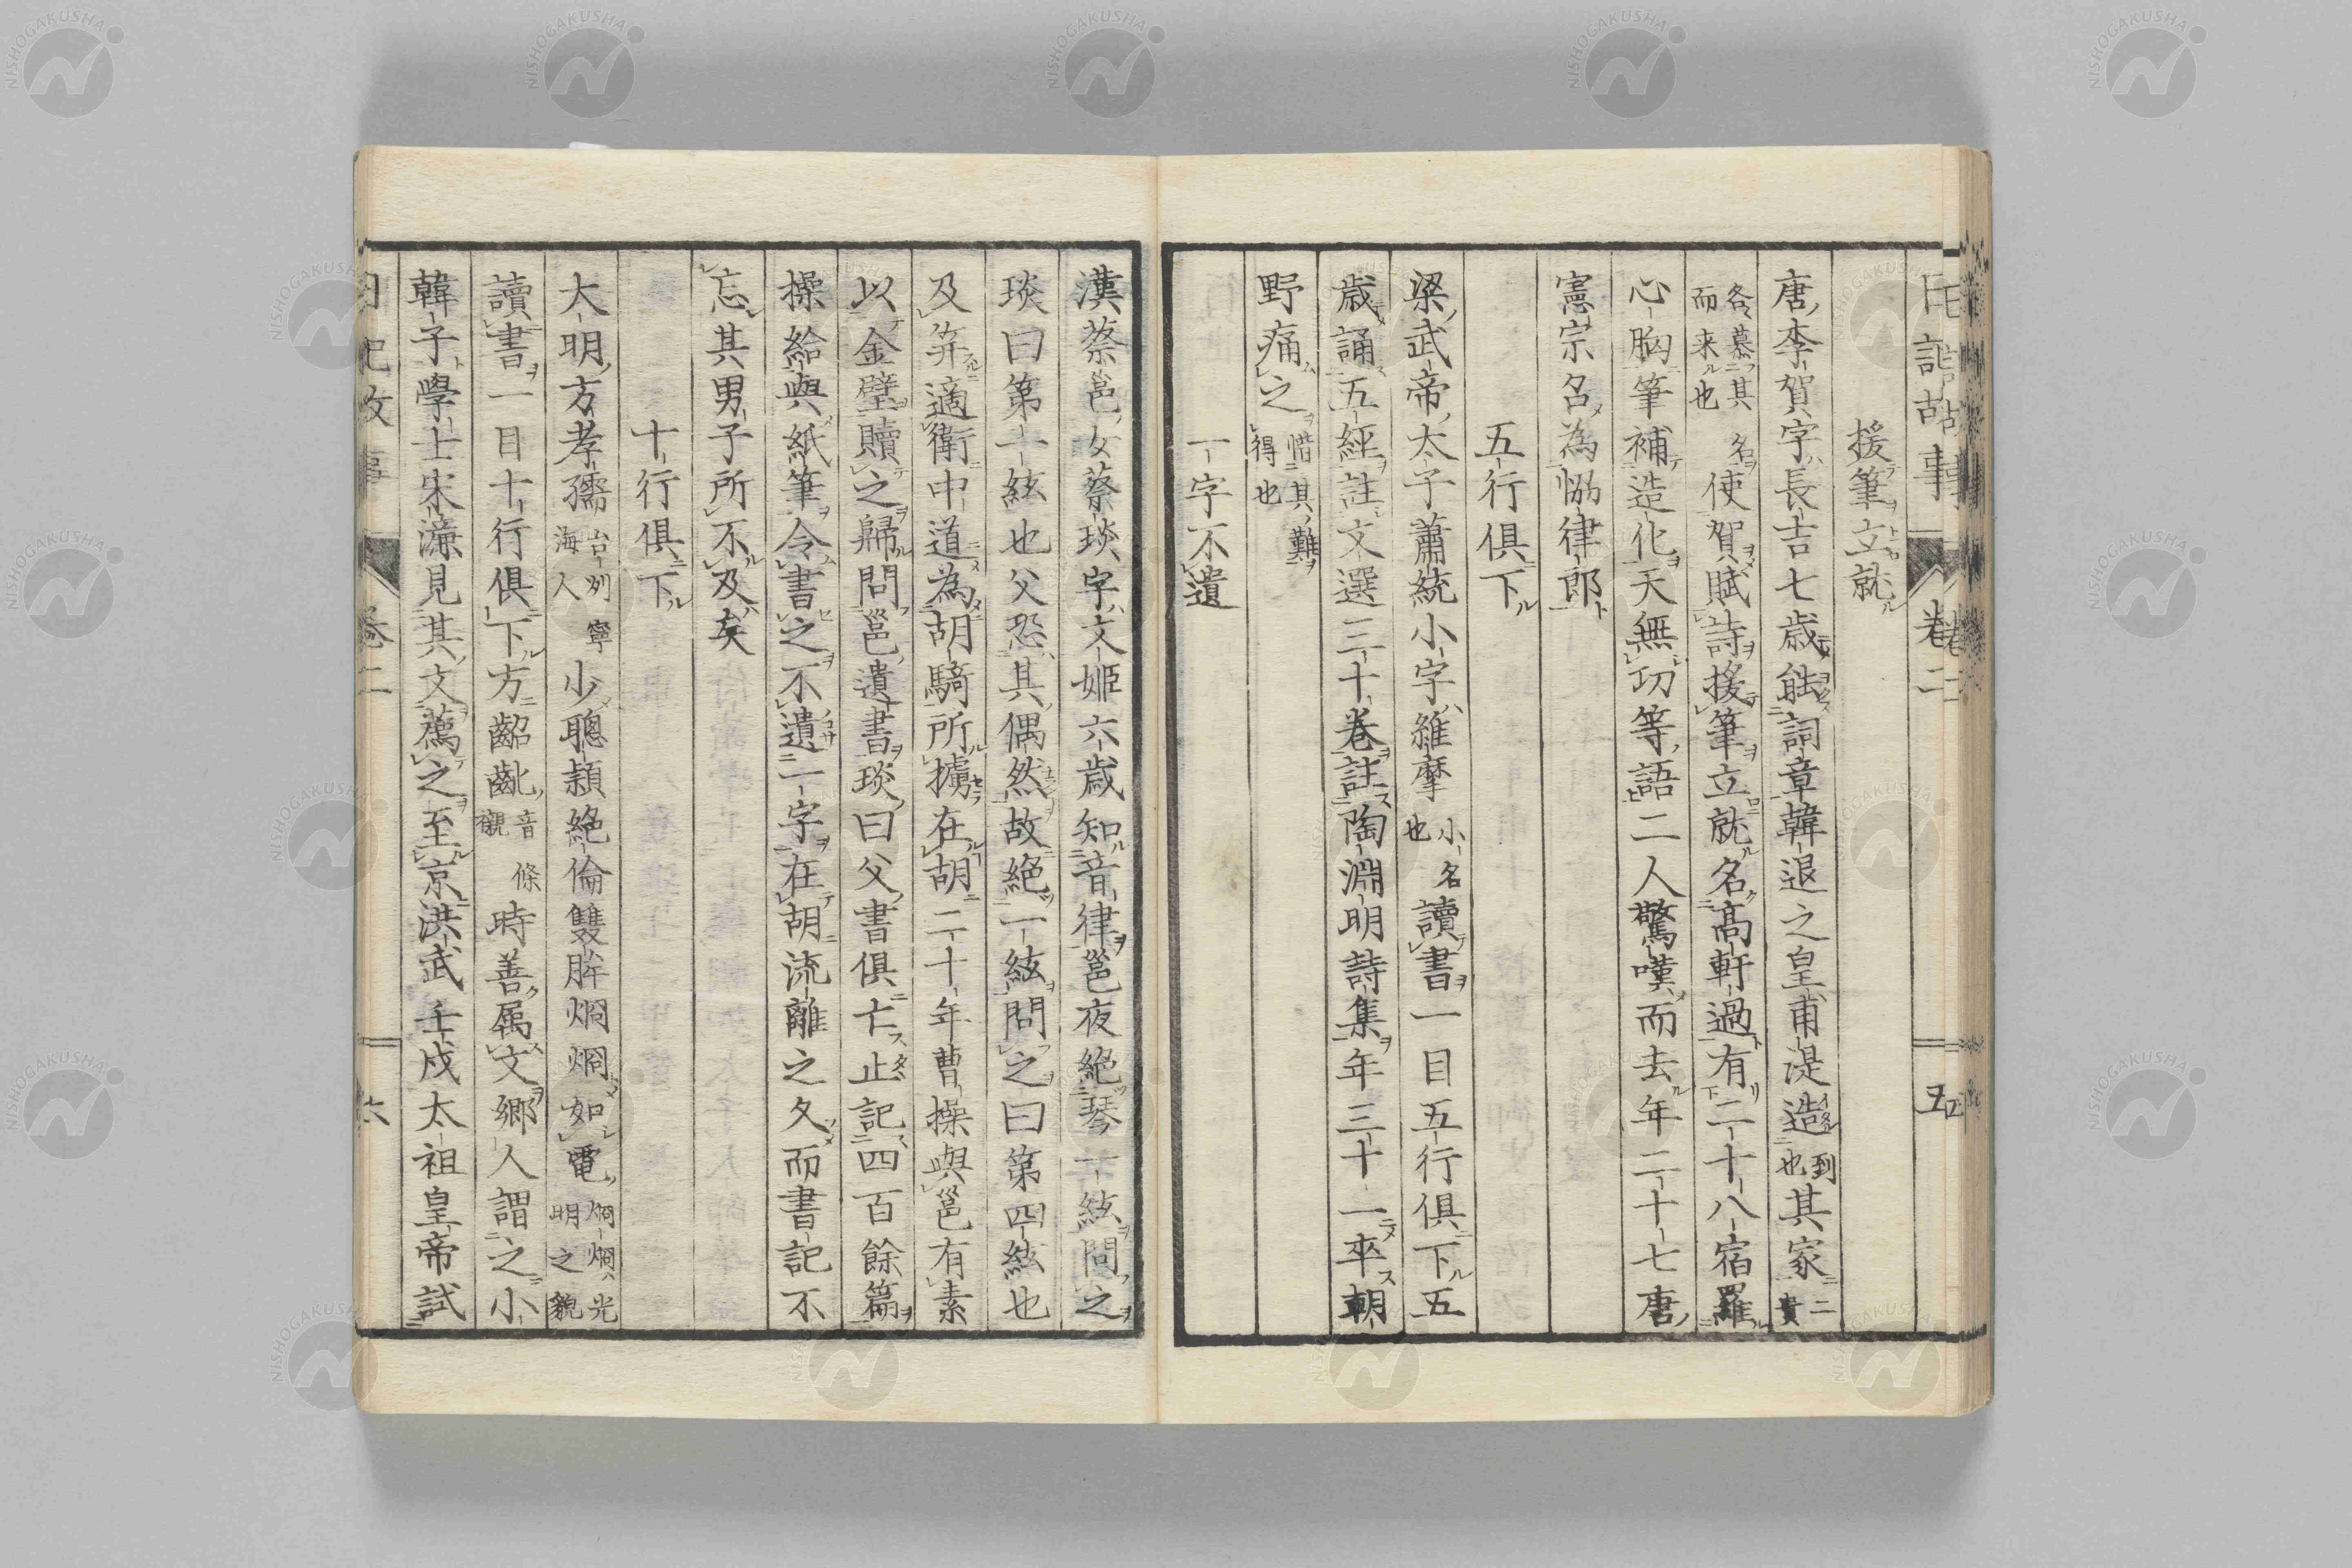 日記故事 卷二 五
援筆立就
唐李賀字長吉七歳能詞章韓退之皇甫湜造到也其家二貴
各慕其而来也名使賀賦詩援筆立就名高軒過有二十八宿羅
心胸筆補造化天無功等語二人驚嘆而去年二十七唐
憲宗名為協律郎
五行俱下
梁武帝太子蕭統小字維摩小名也讀書一目五行俱下五
歳誦五經註文選三十卷註陶淵明詩集年三十一卒朝
野痛之惜其難得也
一字不遺
漢蔡邕女蔡琰字文姫六歳知音律邕夜絶琴一絃問之
琰曰第一絃也父恐其偶然故絶一絃問之曰第四絃也
及笄適衛中道為胡騎所擄在胡二十年曹操與邕有素
以金璧贖之歸問邕遺書琰曰父書俱亡止記四百餘篇
操給與紙筆令書之不遺一字在胡流離之久而書記不
忘其男子所不及矣
十行俱下
大明方孝孺台州寧海人少聰頴絶倫雙眸烱烱如電烱烱光明之貌
讀書一目十行俱下方齠齔音條襯時善属文郷人謂之小
韓子學士宋濂見其文薦之至京洪武壬戌太祖皇帝試
日記故事 卷二 六